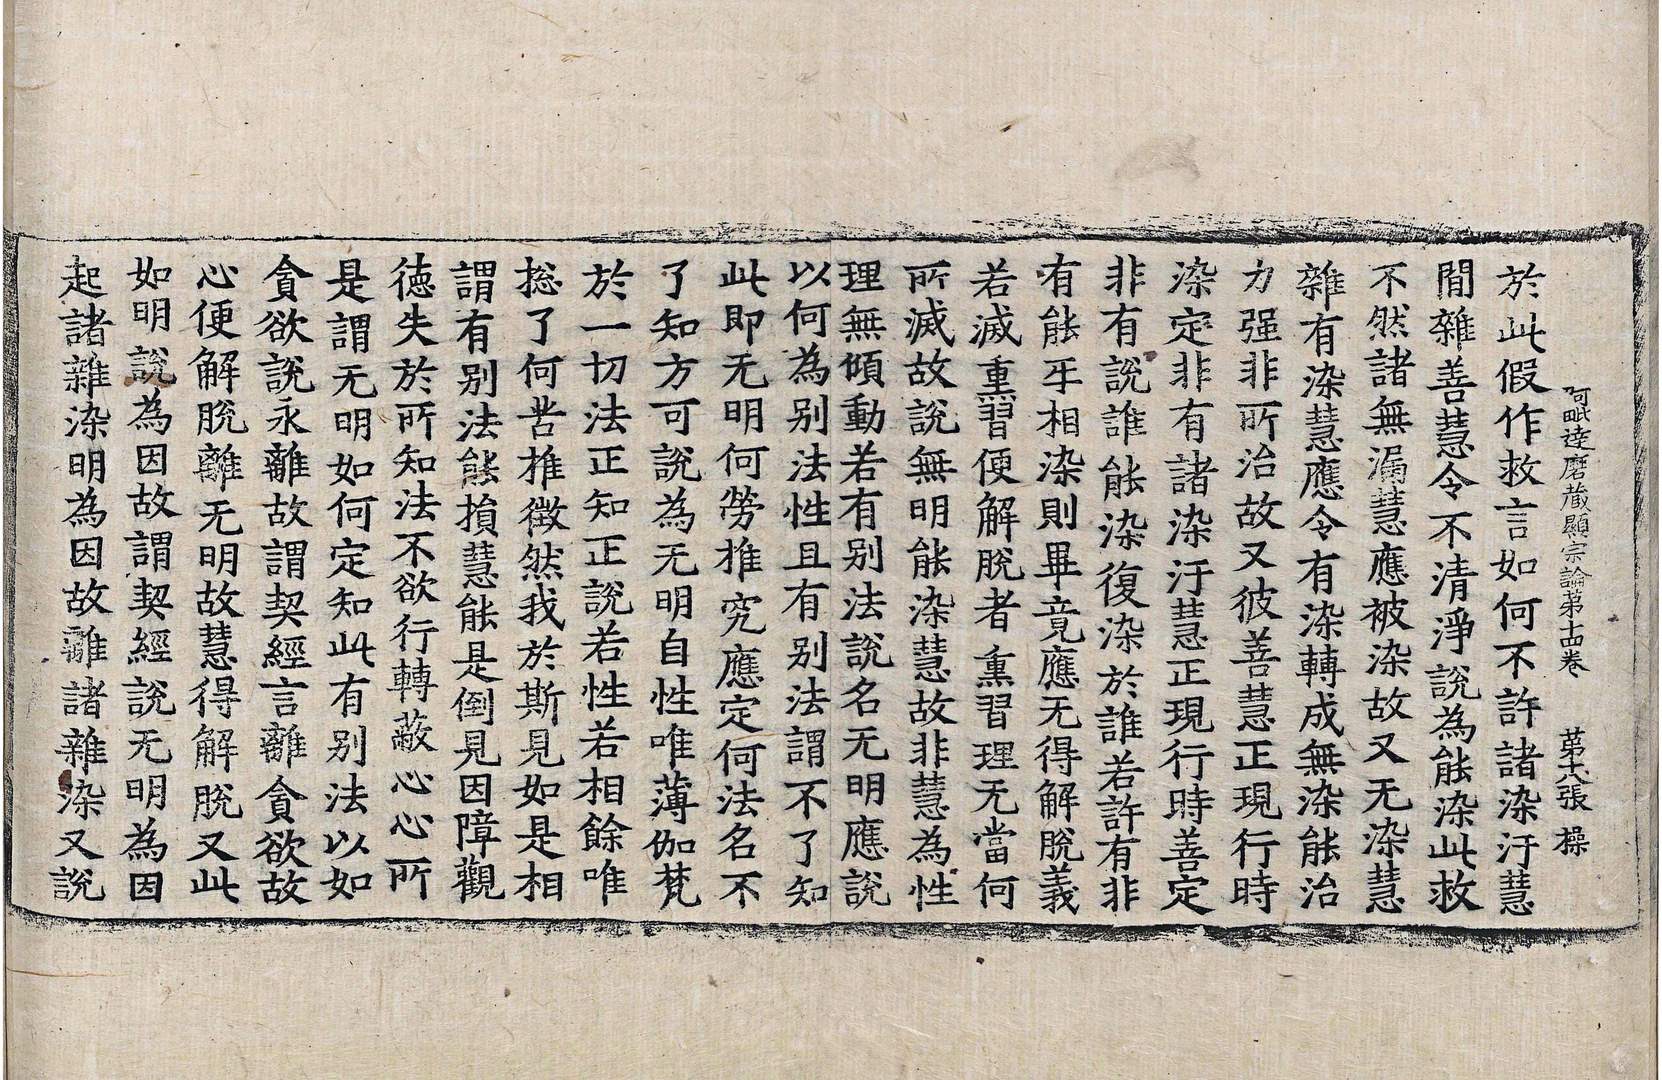 阿毗達磨藏顯宗論第十四卷　第十八張　操
於此假作救言如何不許諸染汙慧
間雜善慧令不清淨說為能染此救
不然諸無漏慧應被染故又无染慧
雜有染慧應令有染轉成無染能治
力强非所治故又彼善慧正現行時
染定非有諸染汙慧正現行時善定
非有說誰能染復染於誰若許有非
有能牙相染則畢竟應无得解脫義
若滅熏習便解脫者熏習理无當何
所滅故說無明能染慧故非慧為性
理無傾動若有别法說名无明應說
以何為别法性且有别法謂不了知
此即无明何勞推究應定何法名不
了知方可說為无明自性唯薄伽梵
於一切法正知正說若性若相餘唯
捴了何苦推徵然我於斯見如是相
謂有别法能損慧能是倒見因障觀
德失於所知法不欲行轉蔽心心所
是謂无明如何定知此有别法以如
貪欲說永離故謂契經言離貪欲故
心便解脫離无明故慧得解脫又此
如明說為因故謂契經說无明為因
起諸雜染明為因故離諸雜染又說